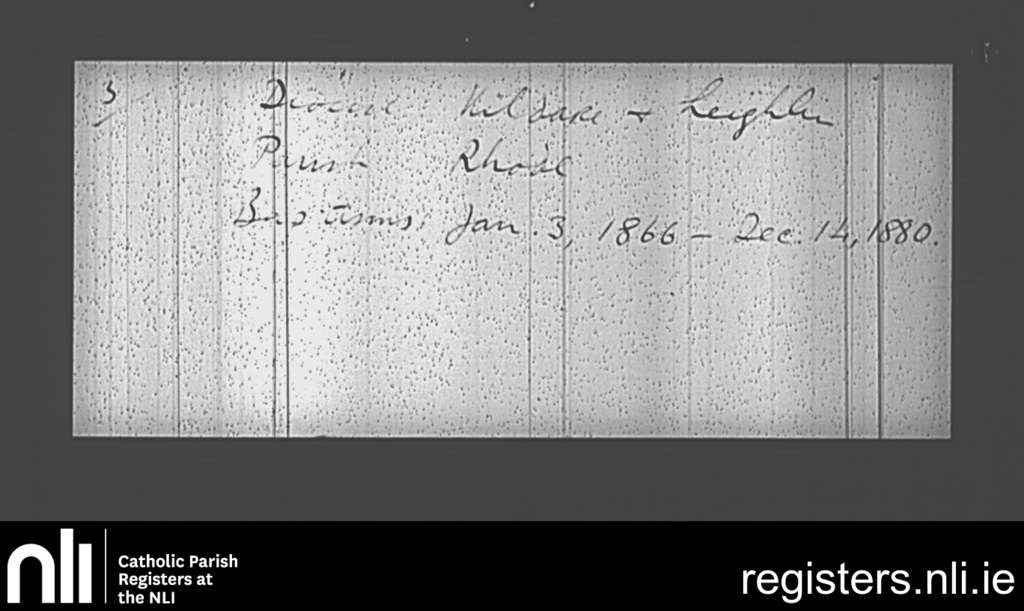 3
Diocese Kildare + Leighlin
Parish Rhode
Baptisms: Jan. 3, 1866 – Dec. 14, 1880.
nli
Catholic Parish
Registers at
the NLI
registers.nli.ie